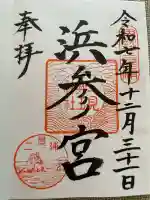 令和七年十二月三十一日
浜参宮
奉拝